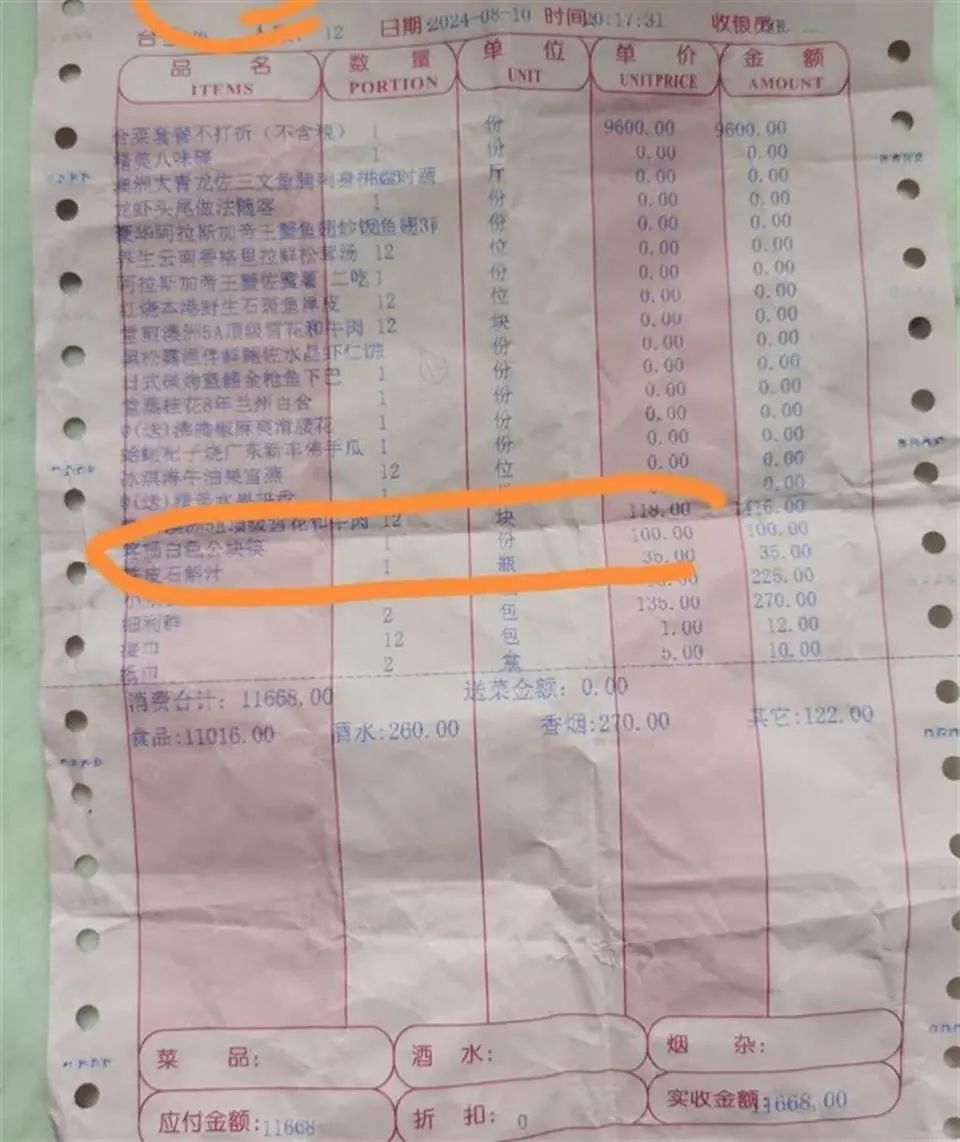 台 12 日期:2024-08-10 时间20:17:31 收银员
品 名 数 量 单 位 单 价 金 额
ITEMS PORTION UNIT UNITPRICE AMOUNT
合菜套餐不打折(不含税) 1 份 9600.00 9600.00
精美八味碟 1 份 0.00 0.00
澳洲大青龙佐三文鱼腩刺身拼 时蔬 斤 0.00 0.00
龙虾头尾做法随客 1 份 0.00 0.00
豪华阿拉斯加帝王蟹鱼翅炒 鱼翅 份 0.00 0.00
养生云南香格里拉鲜松茸汤 12 位 0.00 0.00
阿拉斯加帝王蟹佐 二吃 1 份 0.00 0.00
红烧本港野生石斑鱼厚皮 12 位 0.00 0.00
堂煎澳洲5A顶级雪花和牛肉 12 块 0.00 0.00
黑松露 佐水晶虾仁饼 份 0.00 0.00
日式 金枪鱼下巴 1 份 0.00 0.00
堂蒸桂花8年兰州百合 1 份 0.00 0.00
(送) 椒麻爽滑腰花 1 份 0.00 0.00
杞子烧广东新丰佛手瓜 1 份 0.00 0.00
冰淇淋牛油果官燕 12 位 0.00 0.00
(送)精美水果拼盘 1 0.00 0.00
5A顶级雪花和牛肉 12 块 118.00 1416.00
白色公块筷 1 份 100.00 100.00
铁皮石斛汁 1 瓶 35.00 35.00
225.00
细利群 2 包 135.00 270.00
接巾 12 包 1.00 12.00
纸巾 2 盒 5.00 10.00
消费合计: 11668.00 送菜金额: 0.00
食品:11016.00 酒水:260.00 香烟:270.00 其它:122.00
菜 品: 酒 水: 烟 杂:
应付金额:11668 折 扣: 0 实收金额:11668.00